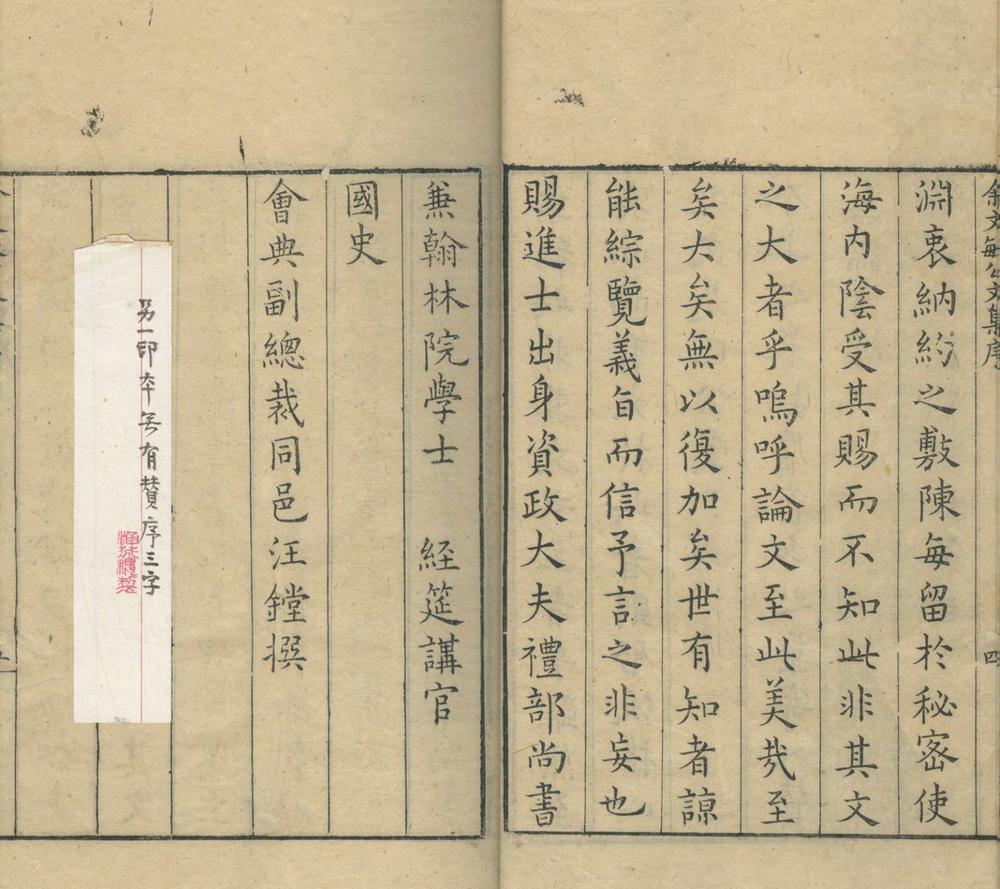 余文敏公文集序
四
淵衷納約之敷陳每留於秘密使
海内陰受其賜而不知此非其文
之大者乎嗚呼論文至此美㢤至
矣大矣無以復加矣世有知者諒
能綜覽義旨而信予言之非妄也
賜進士出身資政大夫禮部尚書
兼翰林院學士 經筵講官
國史
會典副總裁同邑汪鏜撰
另一印本無有賛序三字